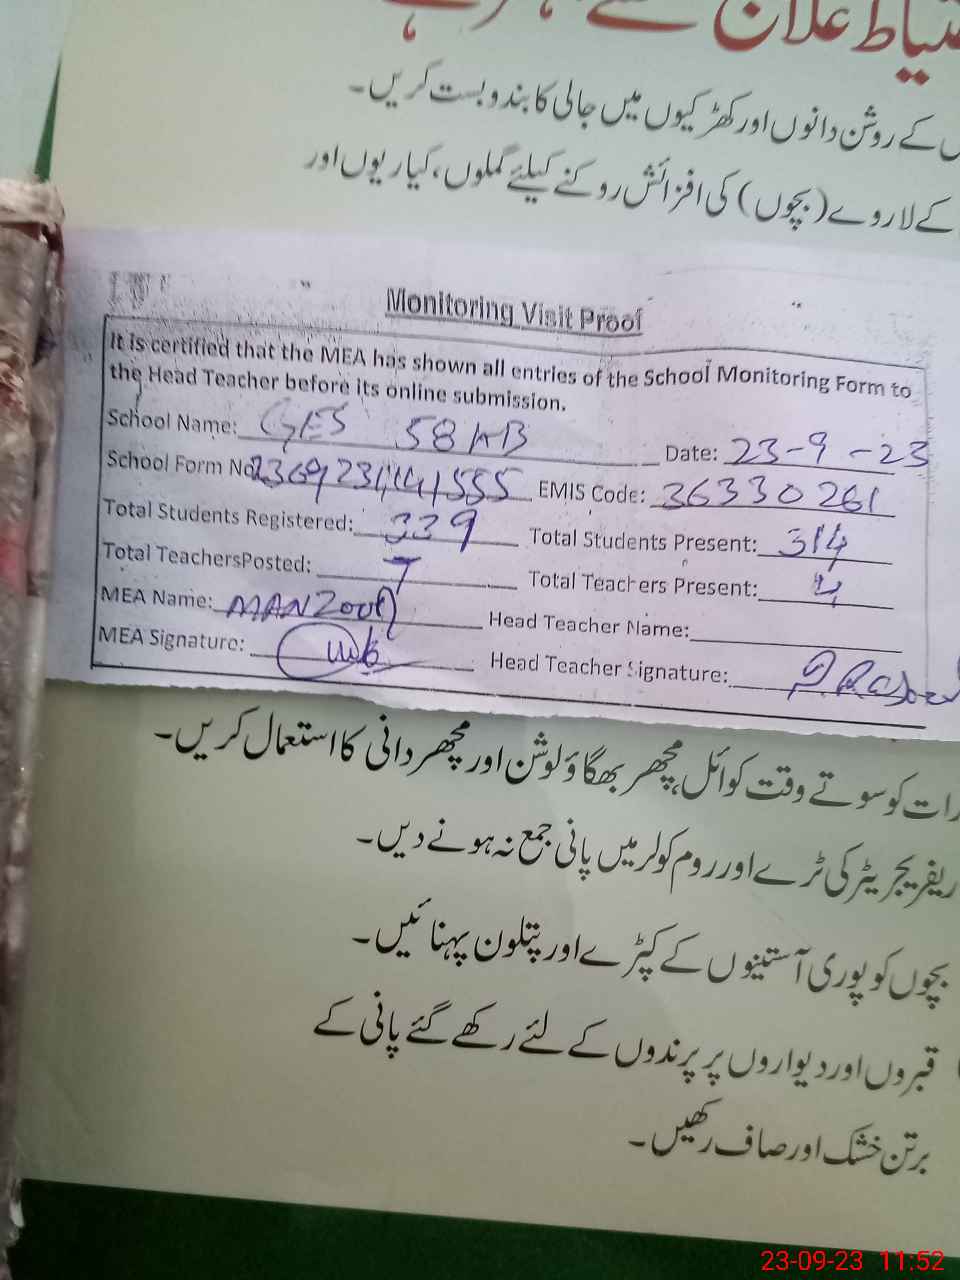 علاج سے
کے روشن دانوں اور کھڑکیوں میں جالی کا بندوبست کریں۔
کے لاروے (بچوں) کی افزائش روکنے کیلئے گملوں، کیاریوں اور
Monitoring Visit Proof
It is certified that the MEA has shown all entries of the School Monitoring Form to
the Head Teacher before its online submission.
School Name: GES 58 AB Date: 23-9-23
School Form No EMIS Code: 36330261
Total Students Registered: 339 Total Students Present: 314
Total TeachersPosted: 7 Total Teachers Present: 4
MEA Name: MANZOOR Head Teacher Name:
MEA Signature: Head Teacher Signature:
رات کو سوتے وقت کوائل، مچھر بھگاؤ لوشن اور مچھر دانی کا استعمال کریں۔
ریفریجریٹر کی ٹرے اور روم کولر میں پانی جمع نہ ہونے دیں۔
بچوں کو پوری آستینوں کے کپڑے اور پتلون پہنائیں۔
قبروں اور دیواروں پر پرندوں کے لئے رکھے گئے پانی کے
برتن خشک اور صاف رکھیں۔
23-09-23 11:52